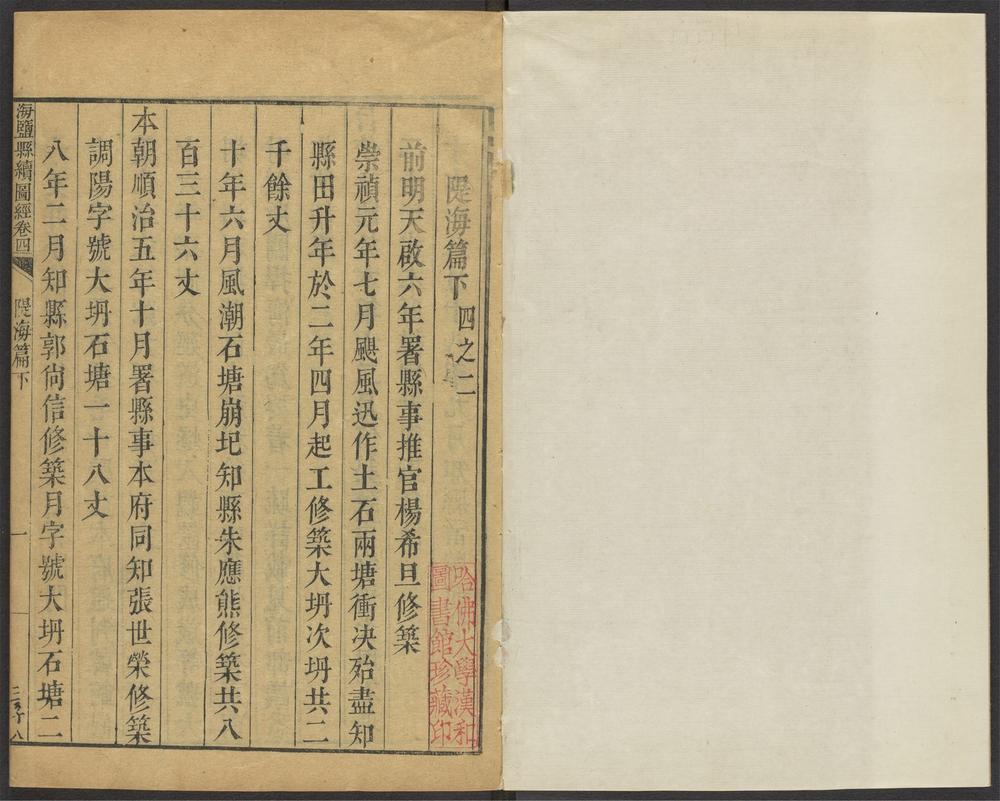 隄海篇下 四之二
前明天啟六年署縣事推官楊希旦修築
崇禎元年七月颶風迅作土石兩塘衝决殆盡知
縣田升年於二年四月起工修築大坍次坍共二
千餘丈
十年六月風潮石塘崩圮知縣朱應熊修築共八
百三十六丈
本朝順治五年十月署縣事本府同知張世榮修築
調陽字號大坍石塘一十八丈
八年二月知縣郭尚信修築月字號大坍石塘二
海鹽縣續圖經卷四
隄海篇下
一
哈佛大學漢和
圖書館珍藏印